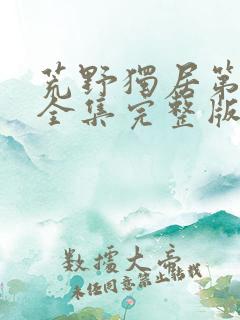 荒野獨居第
全集完整版
數據大帝
未经同意禁止转载